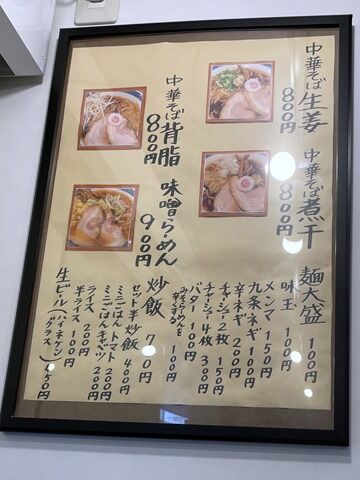 中華そば生姜
800円
中華そば煮干
800円
麺大盛 100円
中華そば背脂
800円
味噌らーめん
900円
味玉 100円
メンマ 150円
九条ネギ 100円
辛ネギ 200円
チャーシュー2枚 150円
チャーシュー4枚 300円
バター 100円
みそらーめんを
辛くする 100円
炒飯 700円
セット半炒飯 400円
ミニごはん トマト 200円
ミニごはんキャベツ 200円
ライス 200円
半ライス 100円
生ビール(ハイネケン
グラス) 450円